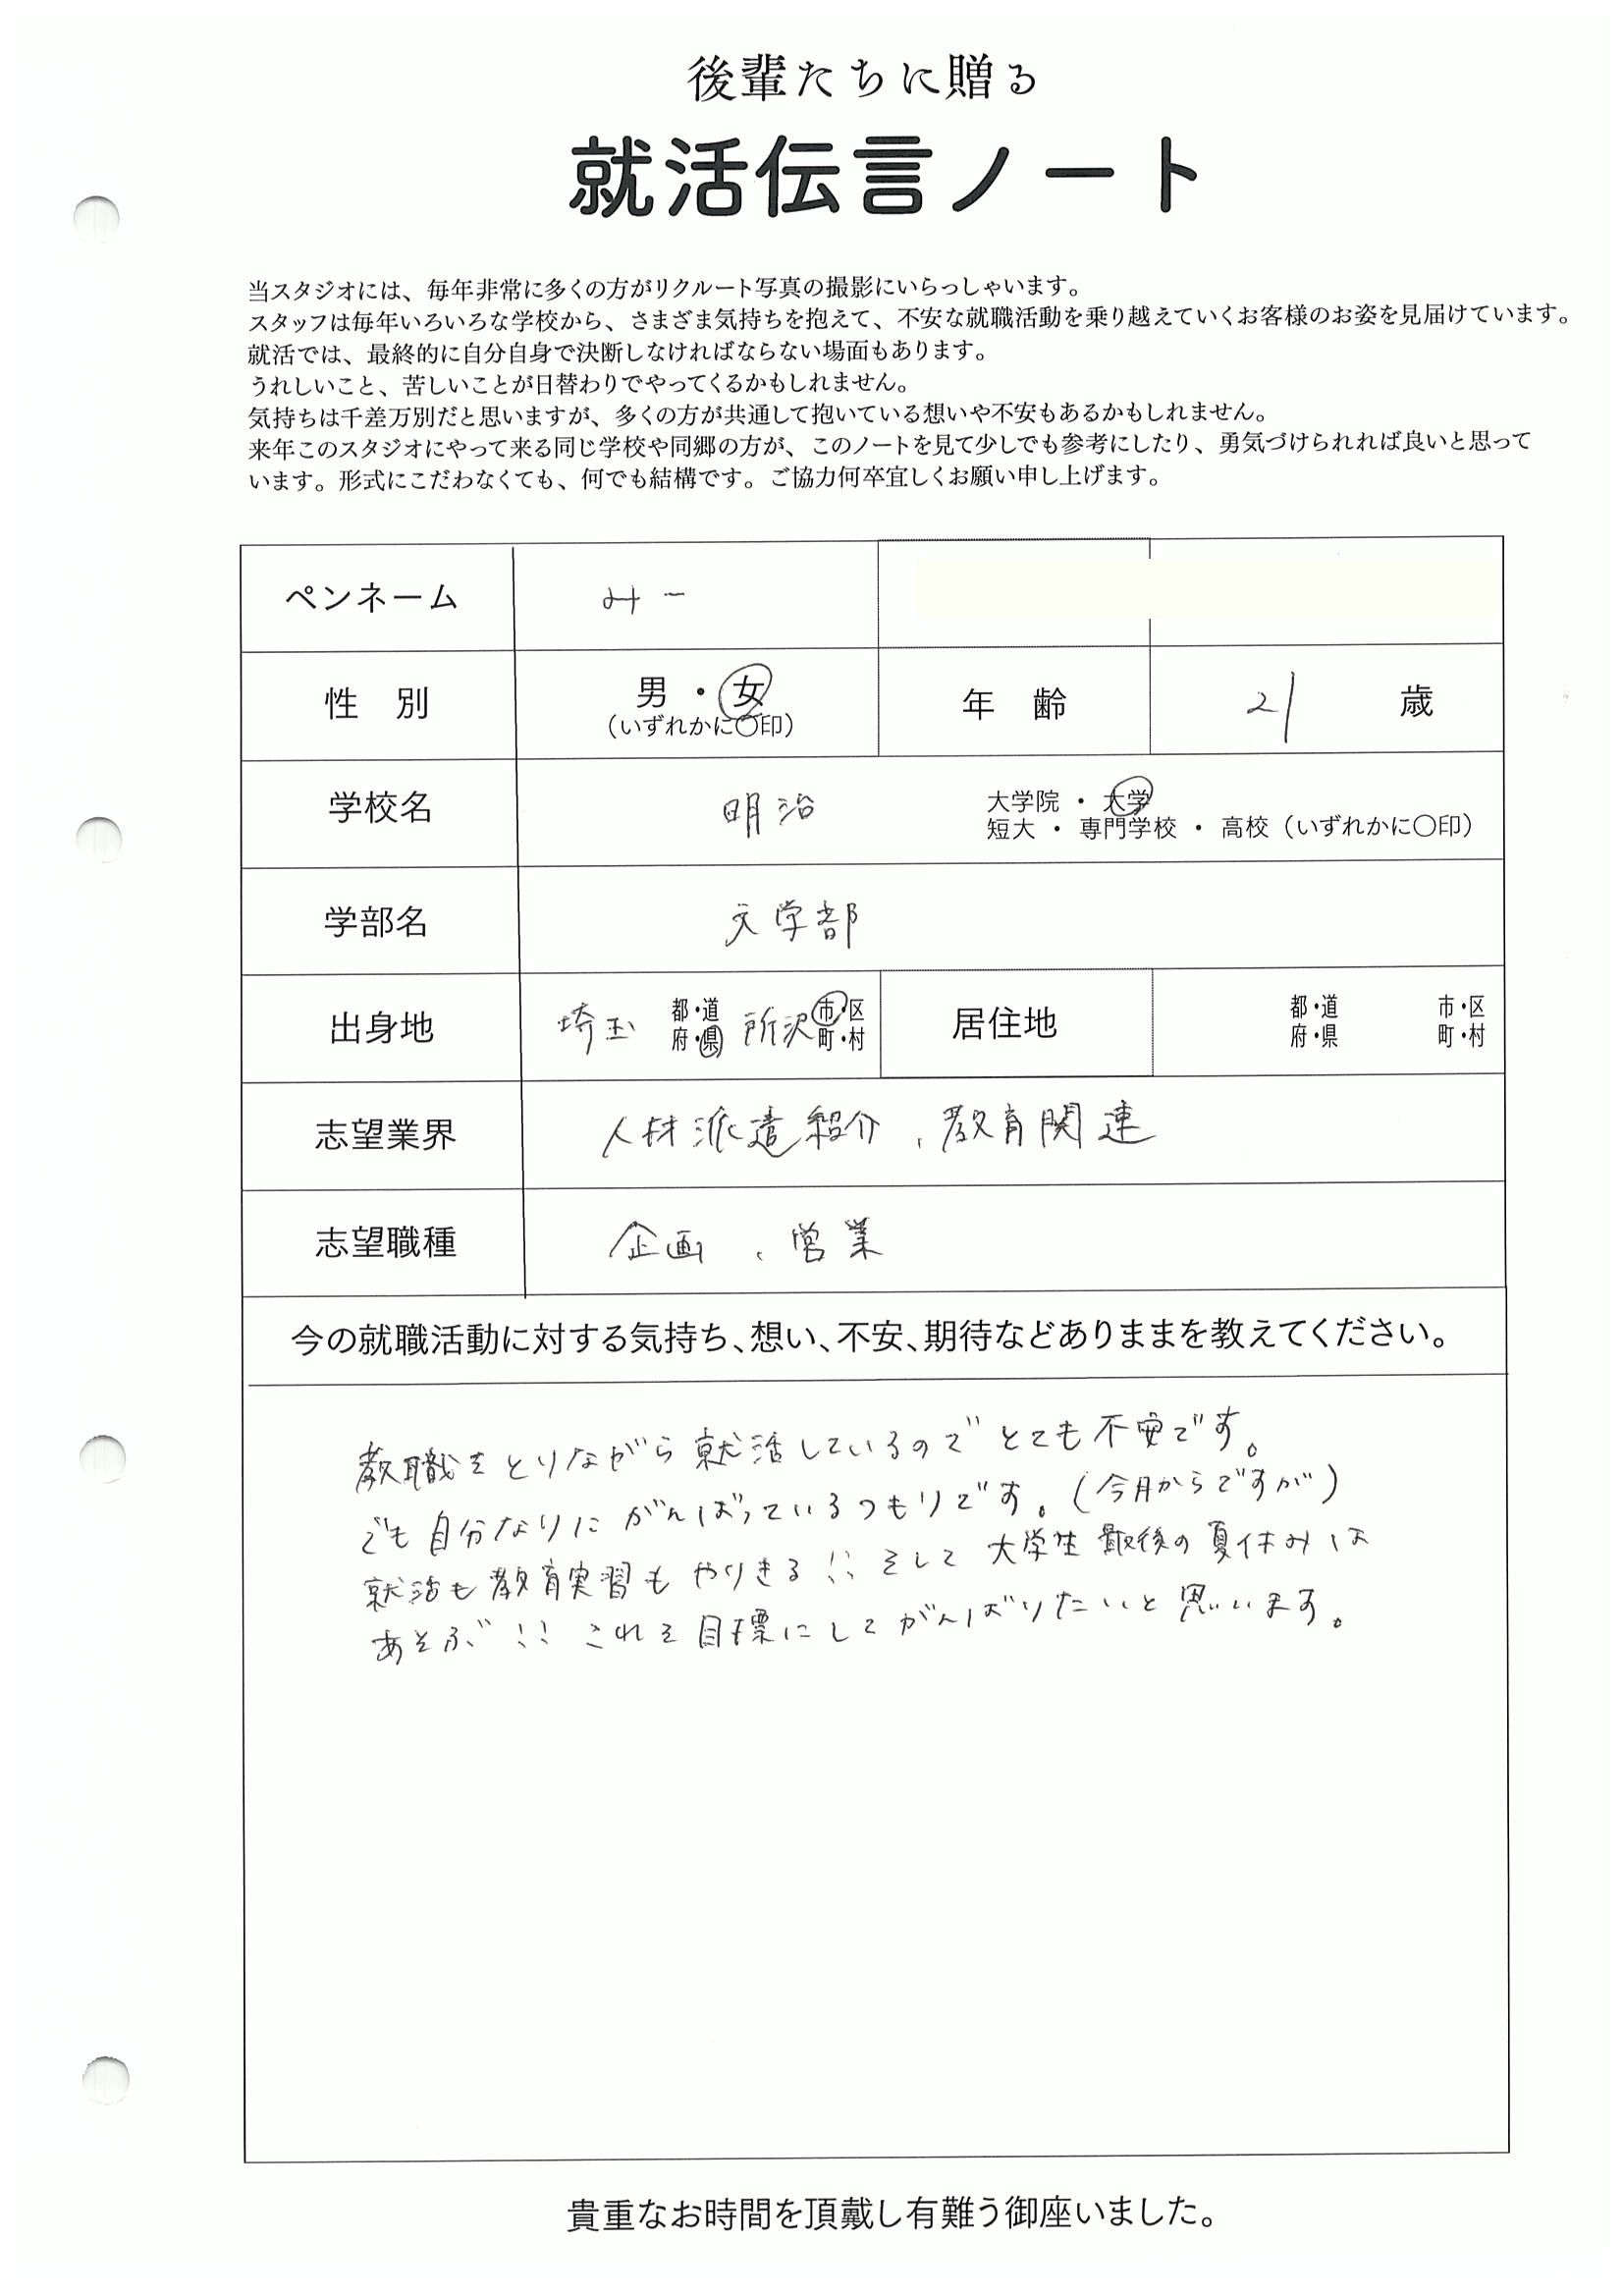 後輩たちに贈る
就活伝言ノート
当スタジオには、毎年非常に多くの方がリクルート写真の撮影にいらっしゃいます。
スタッフは毎年いろいろな学校から、さまざま気持ちを抱えて、不安な就職活動を乗り越えていくお客様のお姿を見届けています。
就活では、最終的に自分自身で決断しなければならない場面もあります。
うれしいこと、苦しいことが日替わりでやってくるかもしれません。
気持ちは千差万別だと思いますが、多くの方が共通して抱いている想いや不安もあるかもしれません。
来年このスタジオにやって来る同じ学校や同郷の方が、このノートを見て少しでも参考にしたり、勇気づけられれば良いと思って
います。形式にこだわなくても、何でも結構です。ご協力何卒宜しくお願い申し上げます。
ペンネーム みー
性 別 男・女 年 齢 21 歳
(いずれかに○印)
学校名 明治 大学院・大学
短大・専門学校・高校(いずれかに○印)
学部名 文学部
出身地 埼玉 都・道 所沢 市・区 居住地 都・道 市・区
府・県 町・村 府・県 町・村
志望業界 人材派遣紹介、教育関連
志望職種 企画、営業
今の就職活動に対する気持ち、想い、不安、期待などありままを教えてください。
教職をとりながら就活しているのでとても不安です。
でも自分なりにがんばっているつもりです。(今月からですが)
就活も教育実習もやりきる!!そして大学生最後の夏休みは
あそぶ!!これを目標にしてがんばりたいと思います。
貴重なお時間を頂戴し有難う御座いました。